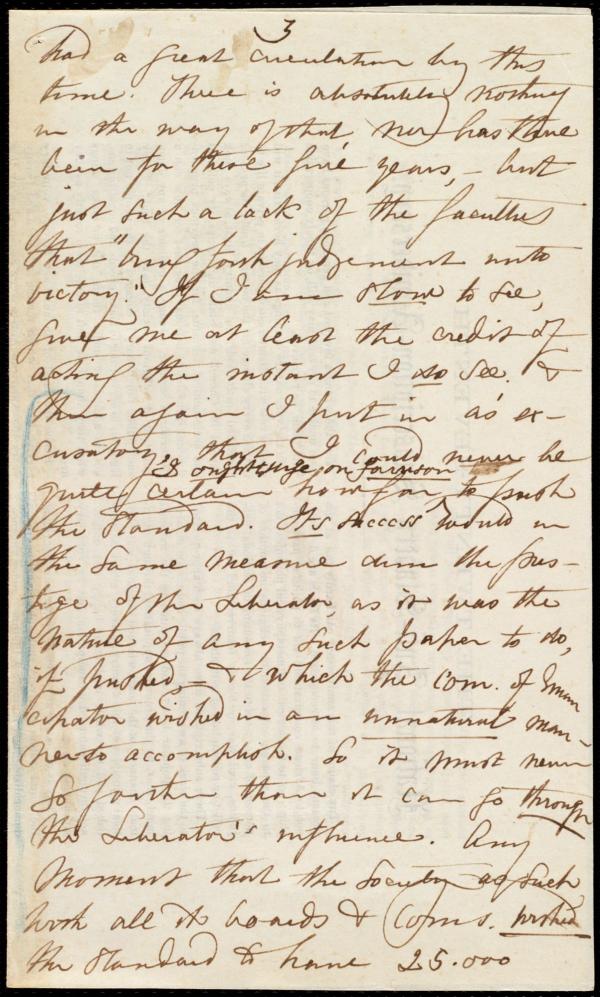 3
had a great circulation by this
time. There is absolutely nothing
in the way of that, nor has there
been for these five years, - but
just such a lack of the faculties
that "bring forth judgement unto
victory." If I am slow to see,
give me at least the credit of
acting the instant I do see. &
then again I put in as ex-
cusatory, that I could never be
I ought to urge on Garrison
quite certain how far, to push
the Standard. Its success would in
the same measure dim the pres-
tige of the Liberator, as it was the
nature of any such paper to do,
if pushed - & which the com. of Eman
cipator wished in an unnatural man-
ner to accomplish. So it must never
go farther than it can go through
the Liberator's influence. Any
moment that the Society as such
with all its boards & Coms. wished
the Standard to have 25.000